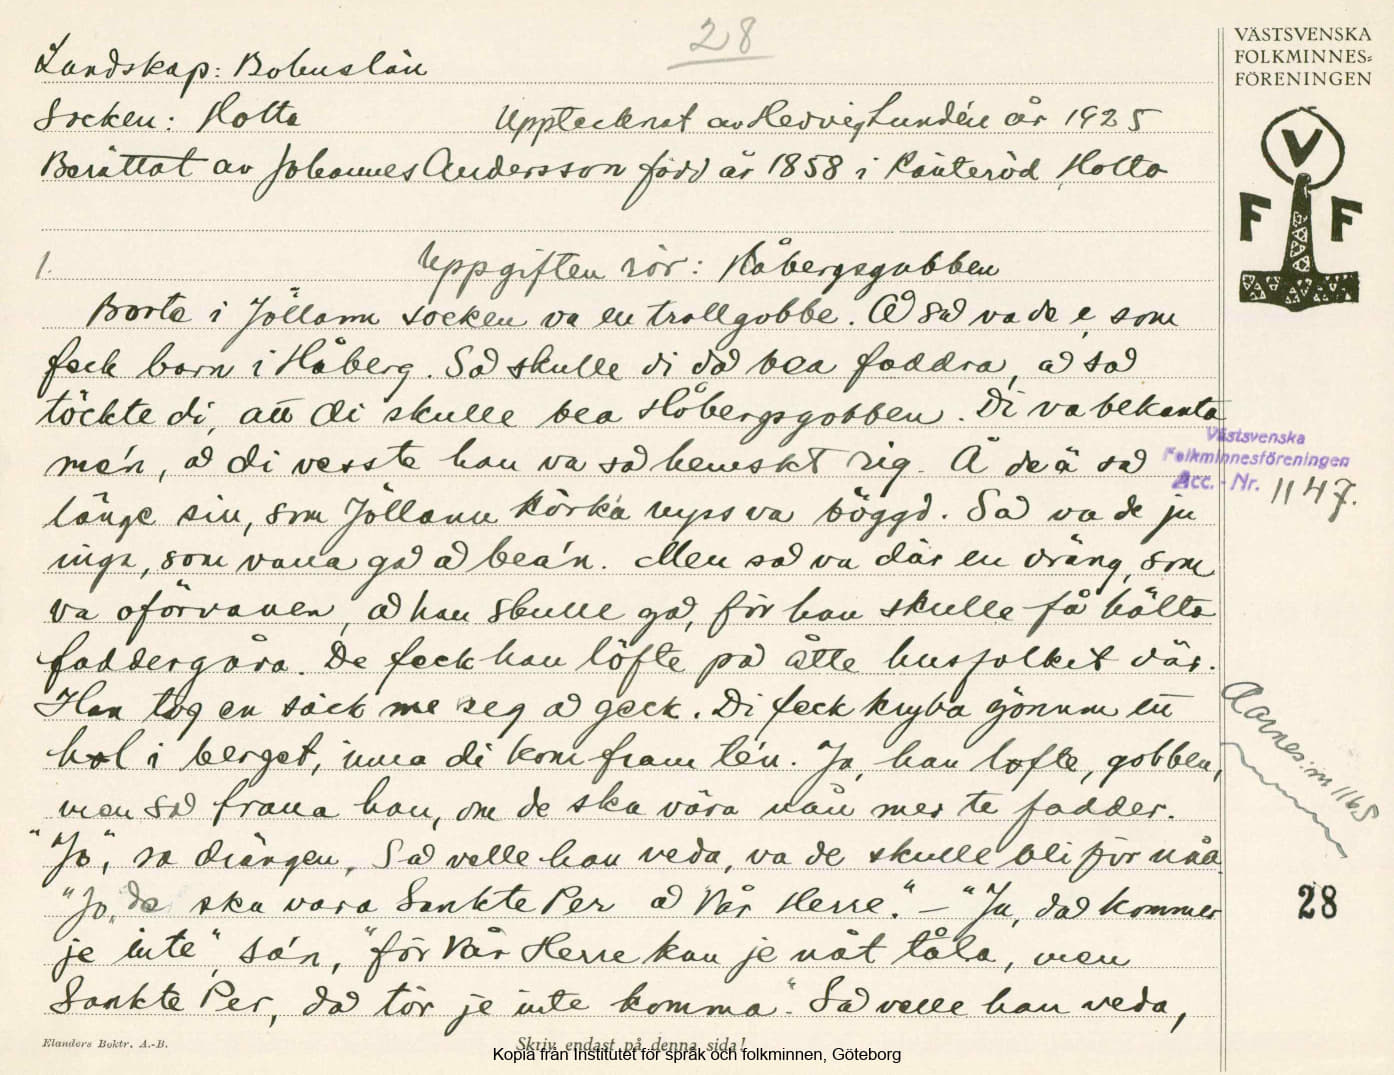 28
VÄSTSVENSKA
FOLKMINNES=
FÖRENINGEN
Landskap: Bohuslän
Socken: Hotta
Upptecknat av Hedvig Lundén år 1925
Berättat av Johannes Andersson född år 1858 i Hotta
V
F F
1.
Uppgiften rör: Håbergsgubben
Borte i Jöllann socken va en trollgobbe. Å så va de e, som
feck barn i Håberg. Så skulle di då bea faddra, å så
töckte di, att di skulle bea Håbergsgobben. Di va bekanta
me'n, å di vesste han va så hemskt rig. Å de ä så
länge sin, som Jöllann körka nyss va böggd. Så va de ju
inga, som vana gå å bea'n. Men så va där en dräng, som
va oförvanen, å han skulle gå, för han skulle få hålta
faddergåra. De feck han löfte på åtte husfolket där.
Han tog en säck me seg å geck. Di feck kryba gönnum ett
hol i berget, inna di kom fram te'n. Ja, han lofte, gobben,
men så frana han, om de ska våra nån mer te fadder.
"Jo", sa drängen, Så velle han veda, va de skulle bli för nåa.
"Jo, de ska vara Sankte Per å Vår Herre." — "Ja, då kommer
je inte", sa'n, "för Vår Herre kan je nåt tåla, men
Sankte Per, då tör je inte komma". Så velle han veda,
Västsvenska
Folkminnesföreningen
Acc.-Nr. 1147.
Aarnes: m 1165
28
Elanders Boktr. A.-B.
Skriv endast på denna sida!
Kopia från Institutet för språk och folkminnen, Göteborg